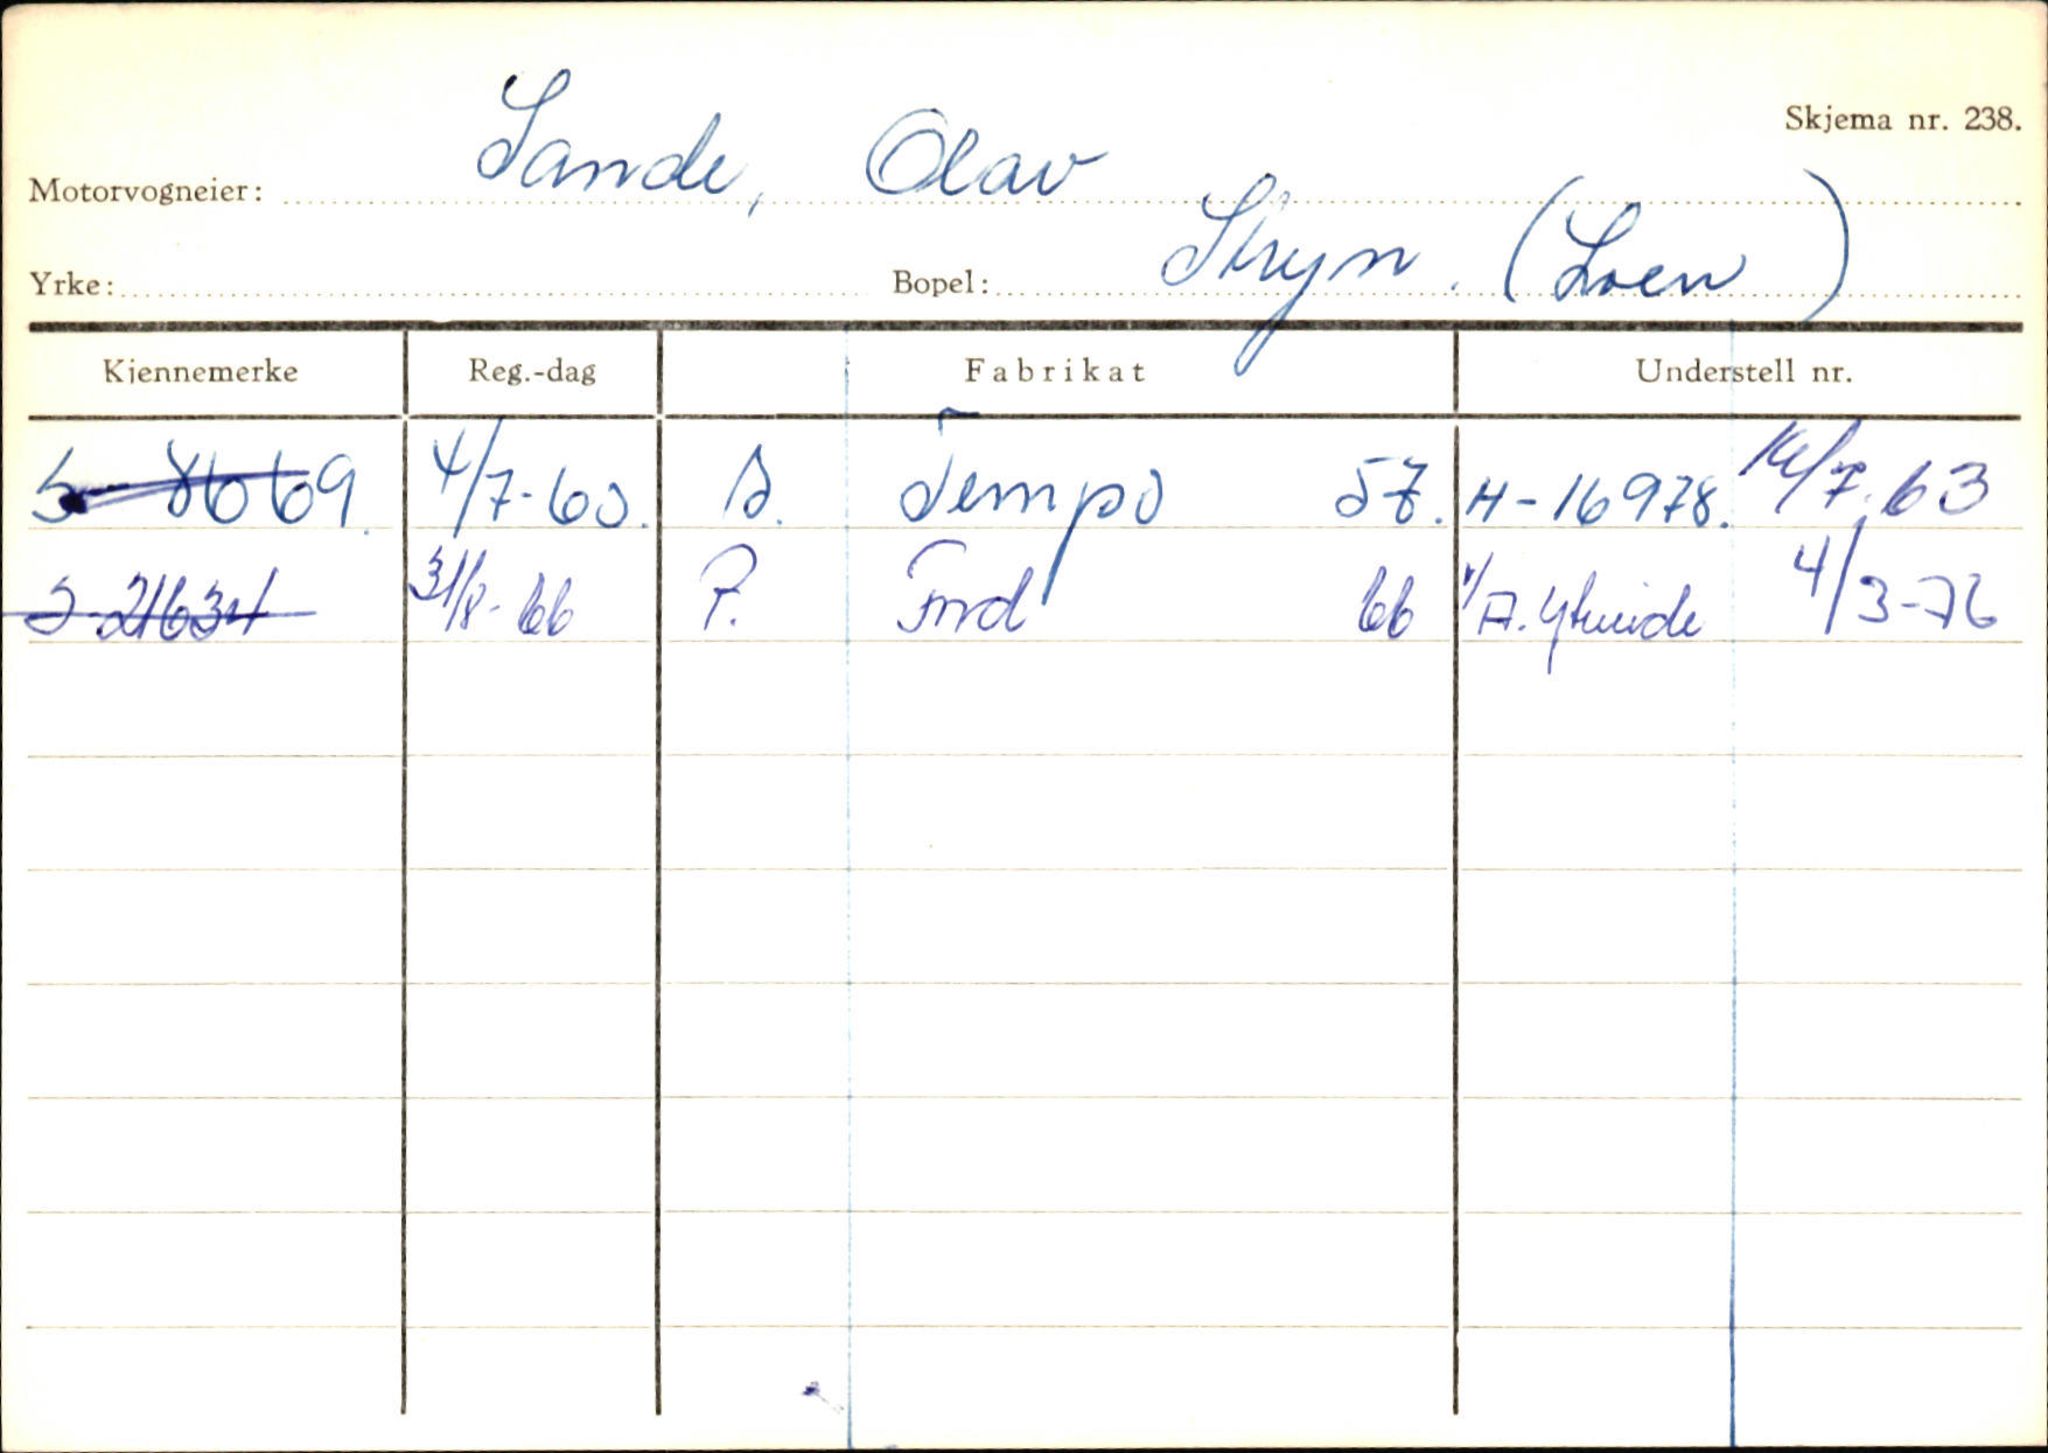 Skjema nr. 238.
Motorvogneier: Sande, Olav
Yrke: Bopel: Stryn. (Loen)
Kjennemerke Reg.-dag Fabrikat Understell nr.
S-8669. 4/7-60. S. Tempo 57. H-16978. 14/7.63
S-21634 31/8-66 P. Ford 66 4/3-76